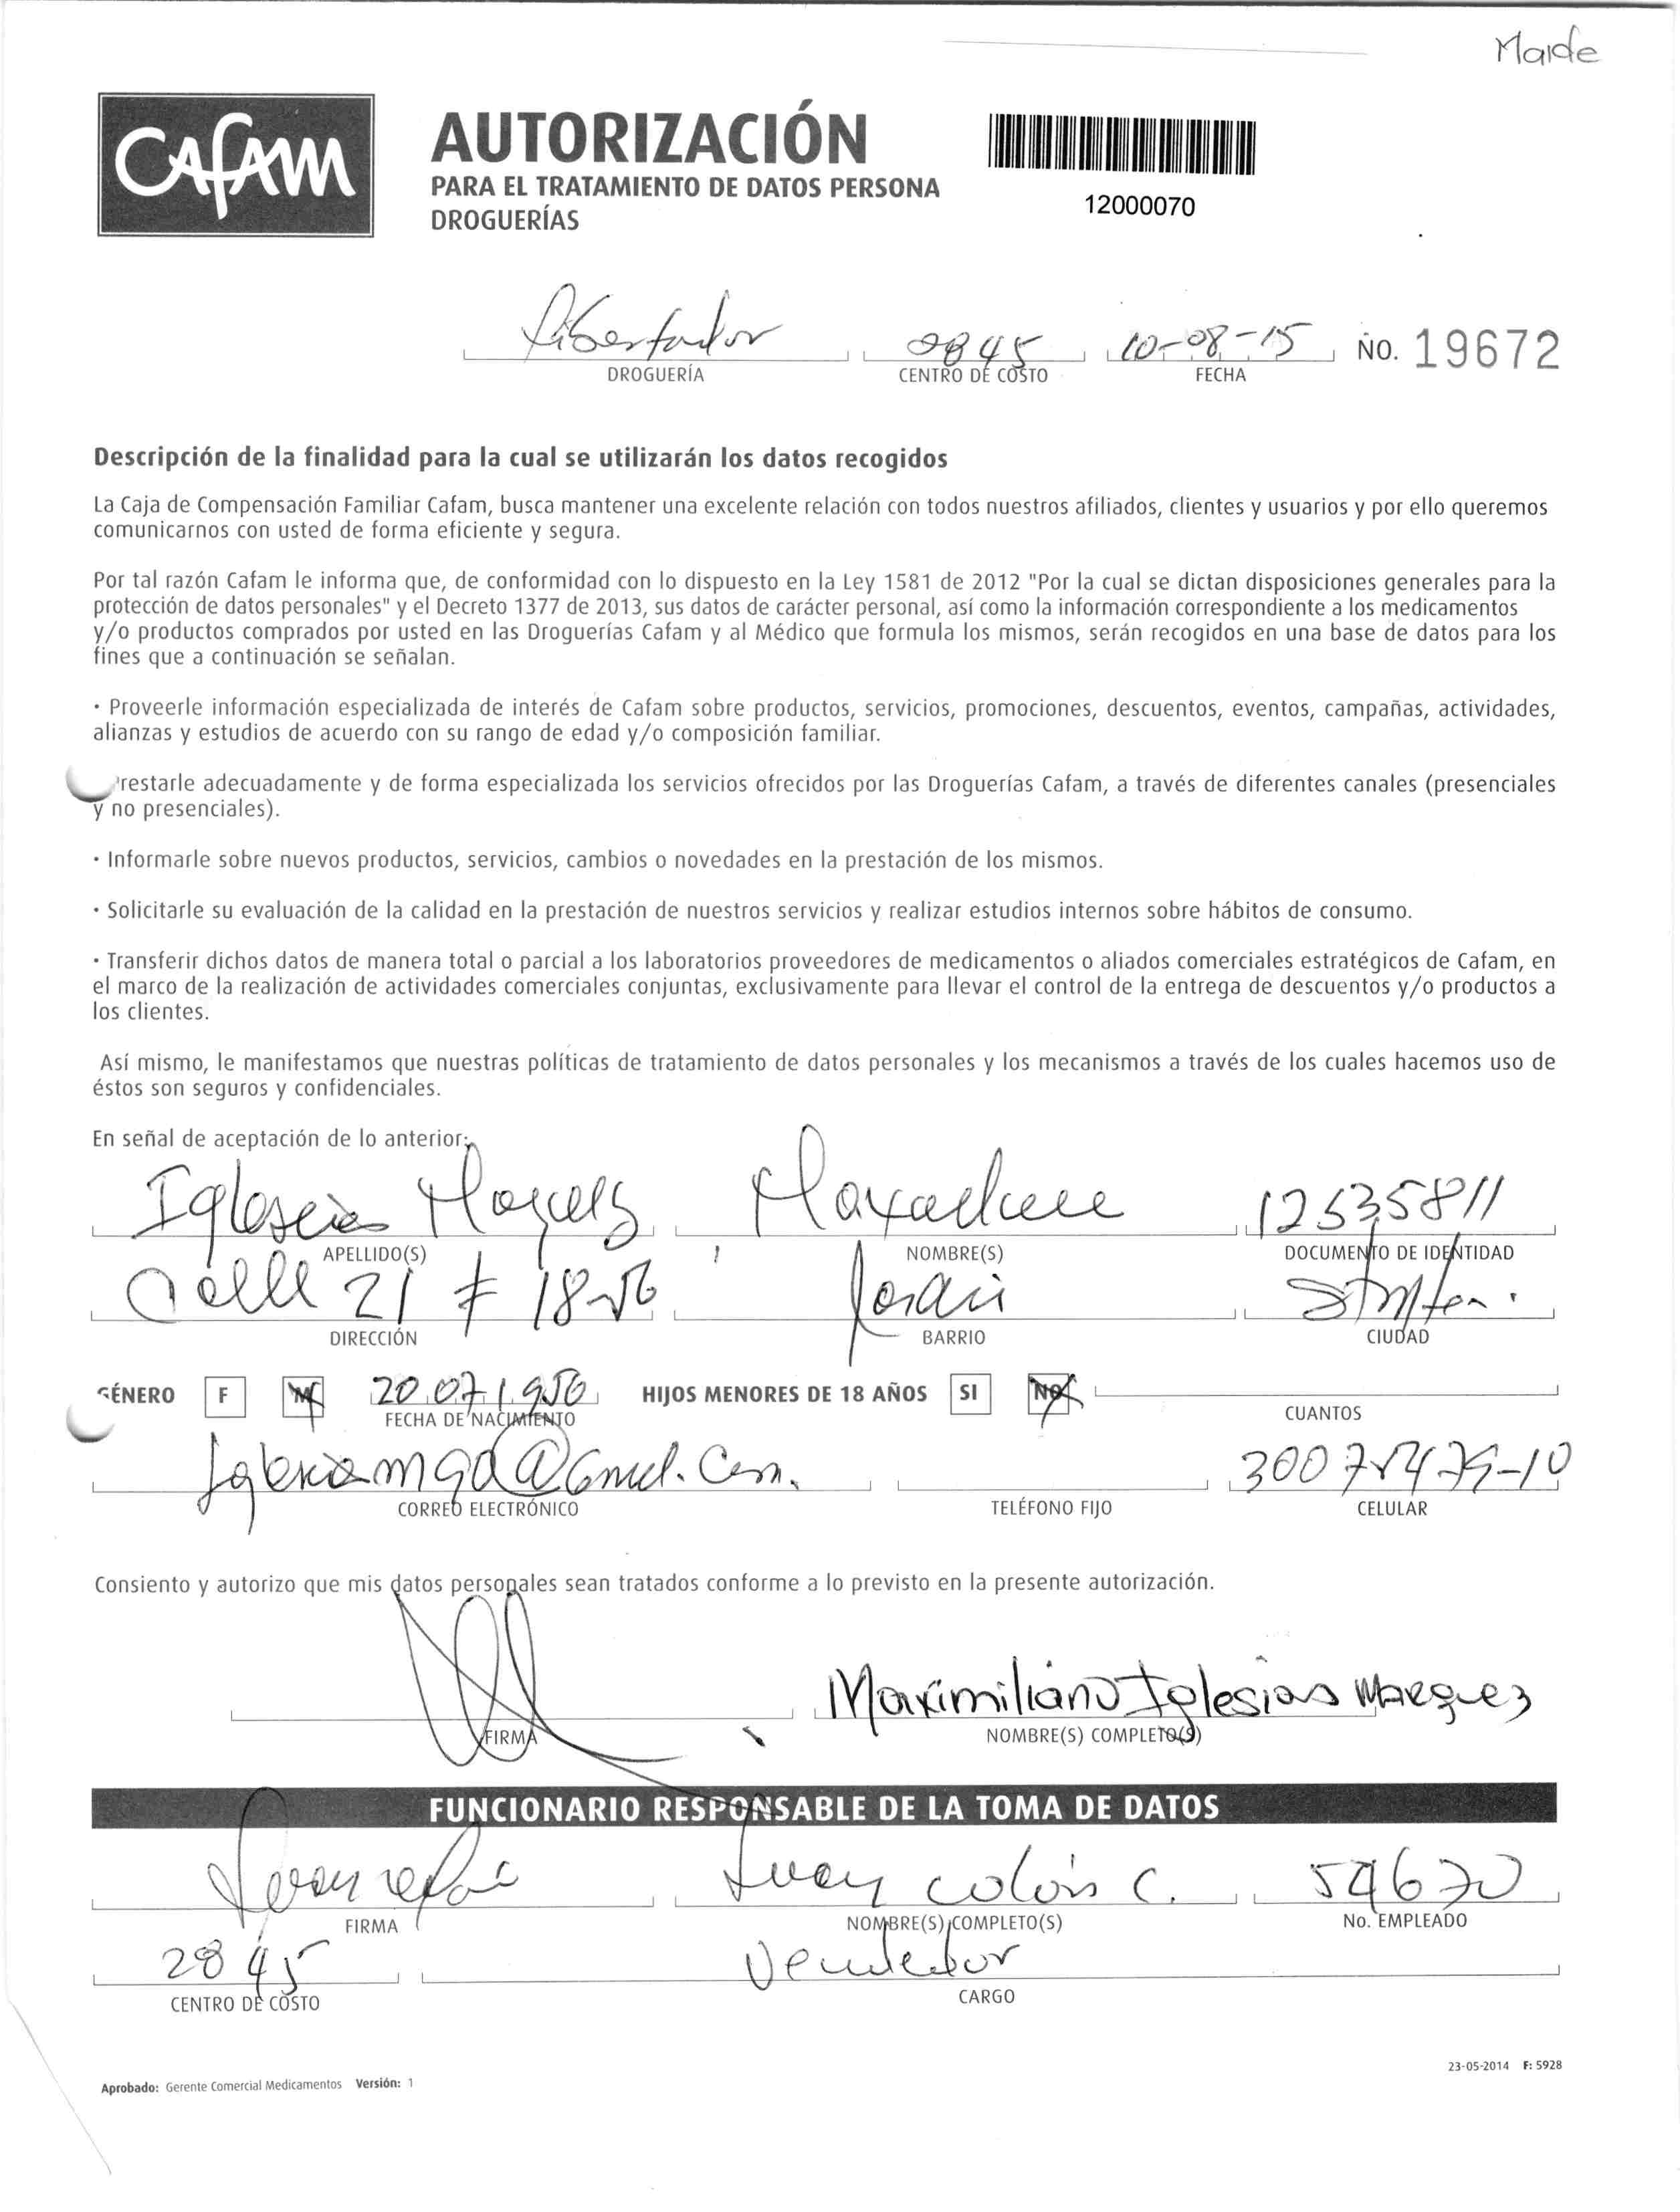 Maide
CAFAM
AUTORIZACIÓN
PARA EL TRATAMIENTO DE DATOS PERSONA
DROGUERÍAS
12000070
Libertador 0845 10-08-15 No. 19672
DROGUERÍA CENTRO DE COSTO FECHA
Descripción de la finalidad para la cual se utilizarán los datos recogidos
La Caja de Compensación Familiar Cafam, busca mantener una excelente relación con todos nuestros afiliados, clientes y usuarios y por ello queremos
comunicarnos con usted de forma eficiente y segura.
Por tal razón Cafam le informa que, de conformidad con lo dispuesto en la Ley 1581 de 2012 "Por la cual se dictan disposiciones generales para la
protección de datos personales" y el Decreto 1377 de 2013, sus datos de carácter personal, así como la información correspondiente a los medicamentos
y/o productos comprados por usted en las Droguerías Cafam y al Médico que formula los mismos, serán recogidos en una base de datos para los
fines que a continuación se señalan.
· Proveerle información especializada de interés de Cafam sobre productos, servicios, promociones, descuentos, eventos, campañas, actividades,
alianzas y estudios de acuerdo con su rango de edad y/o composición familiar.
restarle adecuadamente y de forma especializada los servicios ofrecidos por las Droguerías Cafam, a través de diferentes canales (presenciales
y no presenciales).
· Informarle sobre nuevos productos, servicios, cambios o novedades en la prestación de los mismos.
· Solicitarle su evaluación de la calidad en la prestación de nuestros servicios y realizar estudios internos sobre hábitos de consumo.
· Transferir dichos datos de manera total o parcial a los laboratorios proveedores de medicamentos o aliados comerciales estratégicos de Cafam, en
el marco de la realización de actividades comerciales conjuntas, exclusivamente para llevar el control de la entrega de descuentos y/o productos a
los clientes.
Así mismo, le manifestamos que nuestras políticas de tratamiento de datos personales y los mecanismos a través de los cuales hacemos uso de
éstos son seguros y confidenciales.
En señal de aceptación de lo anterior:
Iglesias 12535811
APELLIDO(S) NOMBRE(S) DOCUMENTO DE IDENTIDAD
Calle 21 # 18-56
DIRECCIÓN BARRIO CIUDAD
GÉNERO F M 20 07 1950 HIJOS MENORES DE 18 AÑOS SI NO
FECHA DE NACIMIENTO CUANTOS
CORREO ELECTRÓNICO TELÉFONO FIJO CELULAR
Consiento y autorizo que mis datos personales sean tratados conforme a lo previsto en la presente autorización.
Maximiliano Iglesias Marquez
FIRMA NOMBRE(S) COMPLETO(S)
FUNCIONARIO RESPONSABLE DE LA TOMA DE DATOS
Juan colón C. 54670
FIRMA NOMBRE(S) COMPLETO(S) No. EMPLEADO
2845 Vendedor
CENTRO DE COSTO CARGO
23-05-2014 F: 5928
Aprobado: Gerente Comercial Medicamentos Versión: 1